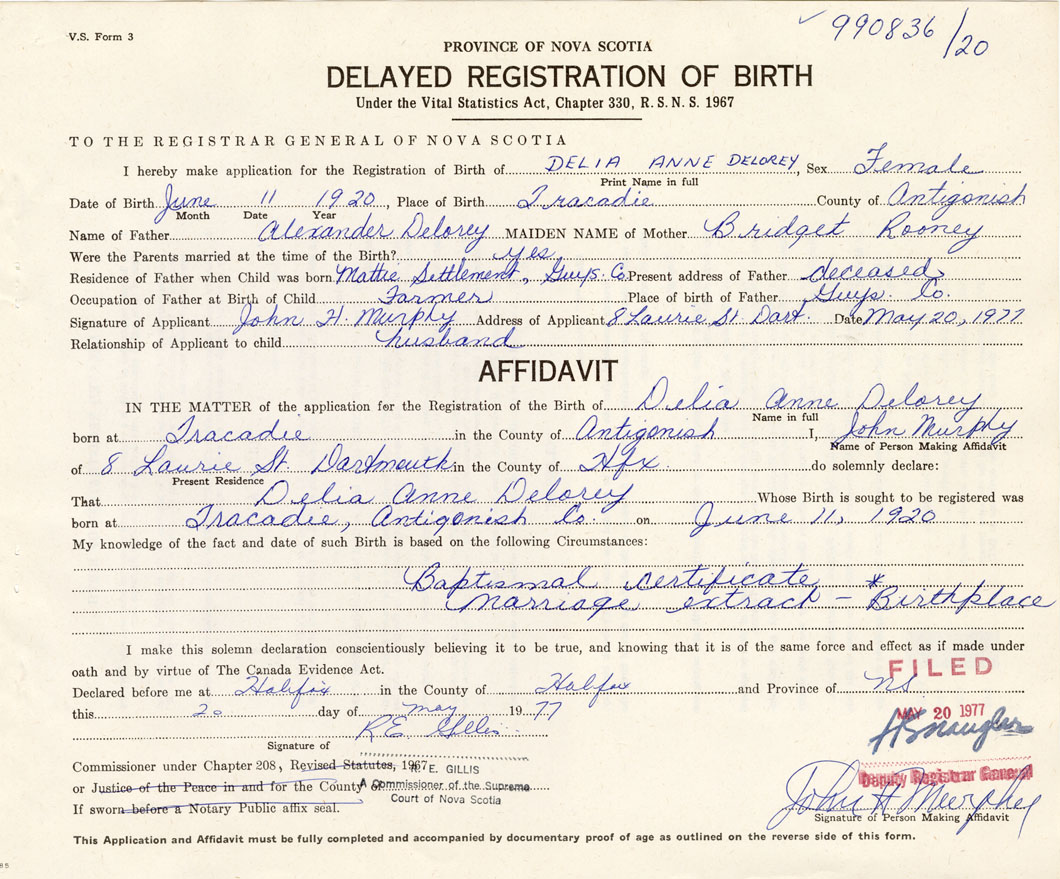 V.S. Form 3
✓ 990836/20
PROVINCE OF NOVA SCOTIA
DELAYED REGISTRATION OF BIRTH
Under the Vital Statistics Act, Chapter 330, R. S. N. S. 1967
TO THE REGISTRAR GENERAL OF NOVA SCOTIA
I hereby make application for the Registration of Birth of DELIA ANNE DELOREY, Sex Female
Print Name in full
Date of Birth June 11 1920, Place of Birth Tracadie County of Antigonish
Month Date Year
Name of Father Alexander Delorey MAIDEN NAME of Mother Bridget Rooney
Were the Parents married at the time of the Birth? yes
Residence of Father when Child was born Mattie Settlement, Guys. Co. Present address of Father deceased
Occupation of Father at Birth of Child Farmer Place of birth of Father Guys. Co.
Signature of Applicant John H. Murphy Address of Applicant 8 Laurie St. Dart. Date May 20, 1977
Relationship of Applicant to child husband
AFFIDAVIT
IN THE MATTER of the application for the Registration of the Birth of Delia Anne Delorey
Name in full
born at Tracadie in the County of Antigonish I, John Murphy
Name of Person Making Affidavit
of 8 Laurie St. Dartmouth in the County of Hfx. do solemnly declare:
Present Residence
That Delia Anne Delorey Whose Birth is sought to be registered was
born at Tracadie, Antigonish Co. on June 11, 1920
My knowledge of the fact and date of such Birth is based on the following Circumstances:
Baptismal certificate *
Marriage extract - Birthplace
I make this solemn declaration conscientiously believing it to be true, and knowing that it is of the same force and effect as if made under
oath and by virtue of The Canada Evidence Act.
FILED
Declared before me at Halifax in the County of Halifax and Province of NS
this 20 day of may 1977
MAY 20 1977
R E Gillis
Signature of
Commissioner under Chapter 208, Revised Statutes, 1967
R. E. GILLIS
or Justice of the Peace in and for the County of
A Commissioner of the Supreme
Court of Nova Scotia
Deputy Registrar General
If sworn before a Notary Public affix seal.
John H Murphy
Signature of Person Making Affidavit
This Application and Affidavit must be fully completed and accompanied by documentary proof of age as outlined on the reverse side of this form.
85